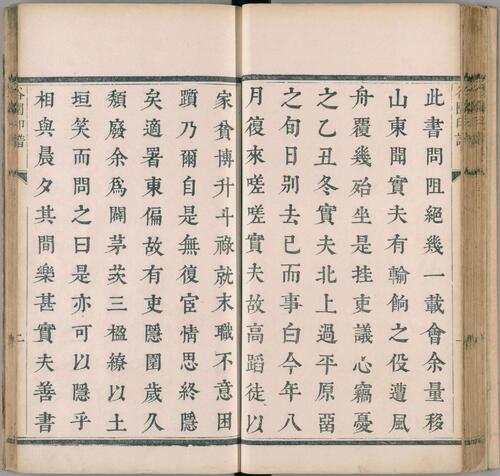 此書問阻絕幾一載會余量移
山東聞實夫有輸餉之役遭風
舟覆幾殆坐是挂吏議心竊憂
之乙丑冬實夫北上過平原畱
之旬日別去已而事白今年八
月復來嗟嗟實夫故高蹈徒以
家貧博升斗祿就末職不意困
躓乃爾自是無復宦情思終隱
矣適署東偏故有吏隱園歲久
頹廢余為闢茅茨三楹繚以土
垣笑而問之曰是亦可以隱乎
相與晨夕其間樂甚實夫善書
谷園印譜
二